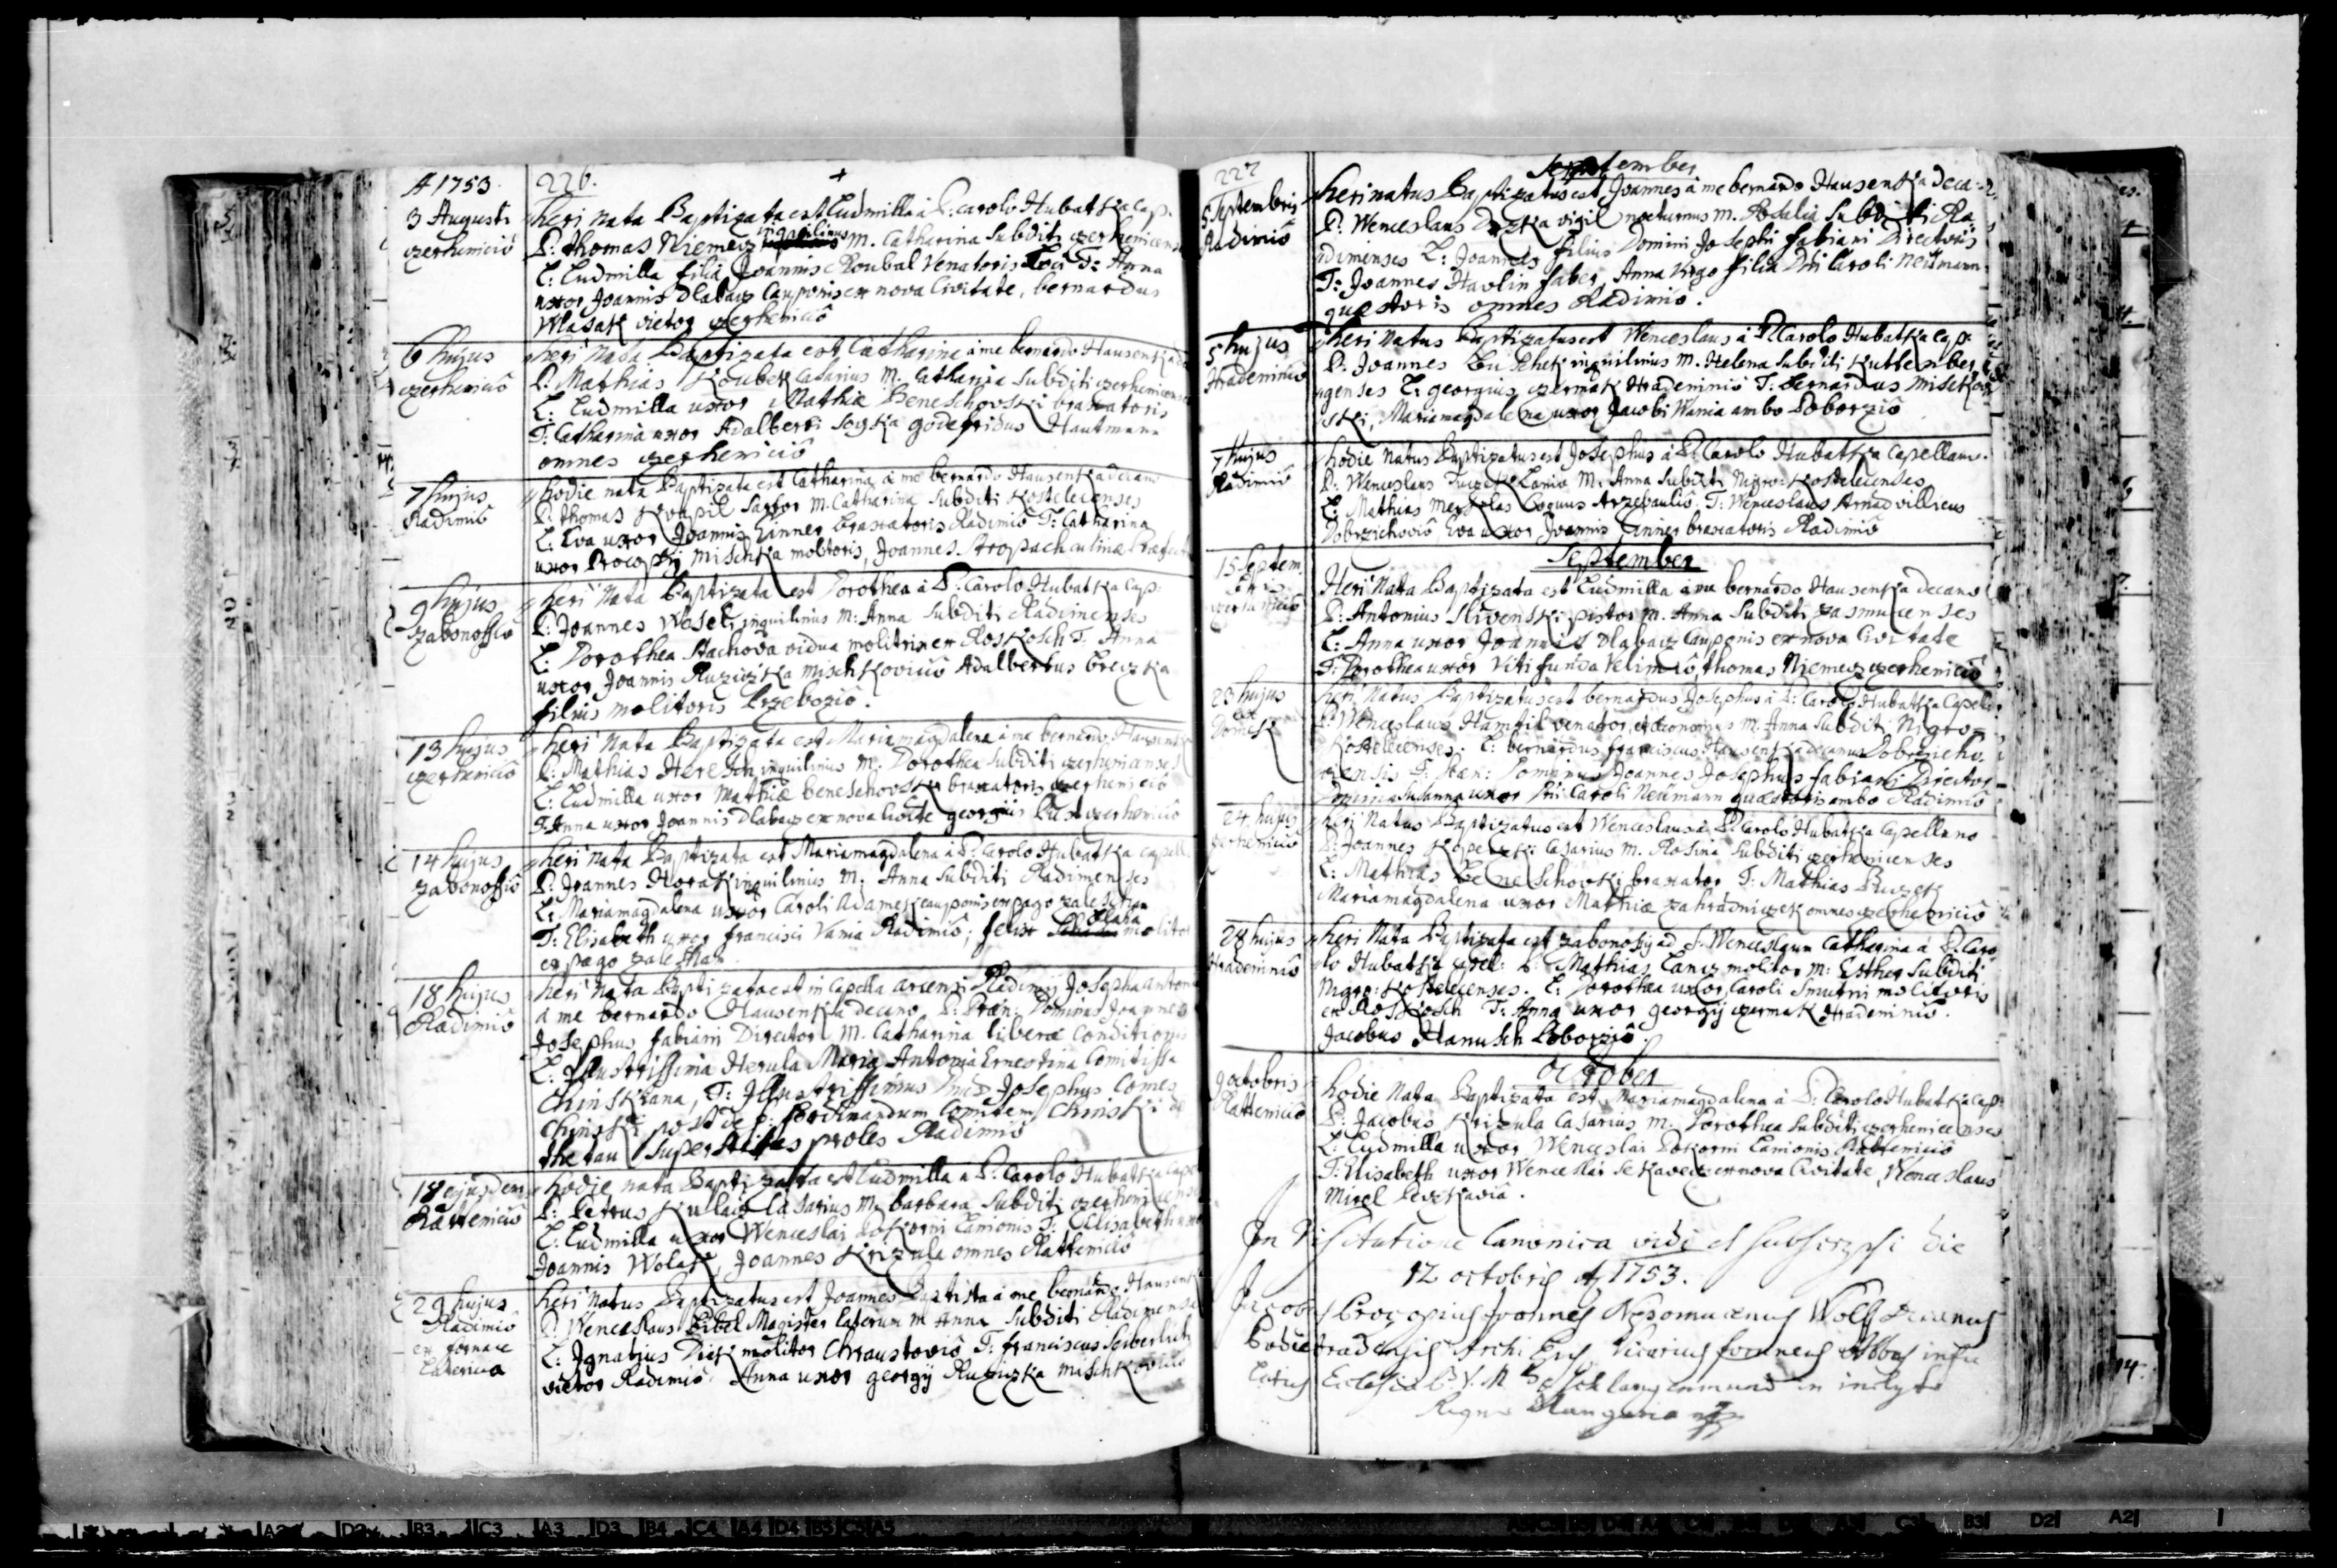 A 1753.
226.
3 Augusti
czerhenicio
heri nata Baptizata est Ludmilla à P. Carolo Hubatka Cap.
P: thomas Niemecz inquilinus M. Catharina Subditi czerhenicens
L: Ludmilla filia Joannis Roubal Venatoris T: Anna
uxor Joannis Dlabacz Cauponis ex nova Civitate, bernardus
Wlasak vietor czerheniciô
6 hujus
czerheniciô
heri nata Baptizata est Catharina à me bernardo Hausenka
P: Mathias Koubek Casarius M. Catharina Subditi czerhenicens
L: Ludmilla uxor Mathiæ Beneschovski braxatoris
T: Catharina uxor Adalberti Soyka godefridus Hautmann
omnes czerheniciô
7 hujus
Radimiô
hodie nata Baptizata est Catharina à me bernardo Hausenka decano
P: thomas Kvapil Sartor M. Catharina Subditi Kostelecenses
L: Eva uxor Joannis Linner braxatoris Radimiô T: Catharina
uxor Procopij Mischka molitoris, Joannes Stropach culinæ Præfectus
9 hujus
Zabonossiô
heri nata Baptizata est Dorothea à P. Carolo Hubatka Cap:
P: Joannes Wosek inquilinus M: Anna Subditi Radimenses
L: Dorothea Stachova vidua molitrix ex Roskosch T: Anna
uxor Joannis Ruziczka Mischkoviciô Adalbertus breczka
filius molitoris Przeboziô.
13 hujus
czerheniciô
heri nata Baptizata est Mariamagdalena à me bernardo Hausenka
P: Mathias Heresch inquilinus M. Dorothea Subditi czerhenicenses
L: Ludmilla uxor Mathiæ beneschovski braxatoris czerheniciô
T: Anna uxor Joannis Dlabacz ex nova Civite georgius Pust czerheniciô
14 hujus
Zabonossiô
heri nata Baptizata est Mariamagdalena à P. Carolo Hubatka capell
P: Joannes Horak inquilinus M: Anna Subditi Radimenses
L: Mariamagdalena uxor Caroli Adamek cauponis ex pago zaleschan
T: Elisabeth uxor francisci Vania Radimiô, felix Blaha molitor
ex pago zaleschan
18 hujus
Radimiô
heri nata Baptizata est in Capella arcensi Radimij Josepha Antonia
à me bernardo Hausenka decano P: Præn: Dominus Joannes
Josephus fabiani Director M. Catharina liberæ Conditionis
L: Illustrissima Herula Maria Antonia Ernestina Comitissa
Chinskiana, T: Illustrissimus Josephus Comes
Chinski post de p: ferdinandum Comitem Chinski de
thetau superstites proles Radimiô
18 ejusdem
Ratteniciô
hodie nata Baptizata est Ludmilla à P. Carolo Hubatka Cape
P: Petrus Kulaicz Casarius M. barbara Subditi czerhenicenses
L: Ludmilla uxor Wenceslai Pokorni Lanionis T: Elisabeth uxor
Joannis Wolak, Joannes Krizula omnes Ratteniciô
29 hujus
Radimiô
ex fornace
Latericia
heri natus Baptizatus est Joannes Baptista à me bernardo Hausenka
P: Wenceslaus Bibel Magister laterum M Anna Subditi Radimenses
L: Ignatius Dick molitor Chraustoviô T: franciscus Seiberlich
vietor Radimiô Anna uxor georgij Ruziczka Mischkoviciô
227
September
5 Septembris
Radimiô
heri natus Baptizatus est Joannes à me bernardo Hausenka deca
P: Wenceslaus Duzka vigil nocturnus M. Rosalia Subditi Ra
dimenses L: Joannes filius Domini Josephi fabiani Directoris
T: Joannes Havlin faber, Anna Virgo filia Dni Caroli Neumann
quæstoris omnes Radimiô.
5 hujus
Hradeniniô
heri natus Baptizatus est Wenceslaus à P. Carolo Hubatka Cap:
P: Joannes Buschek inquilinus M. Helena Subditi Kuttenber
genses L: georgius czermak Hradeniniô T: Bernardus Misetkow
ski, Mariamagdalena uxor Jacobi Wania ambo Poborziô
7 hujus
Radimiô
hodie Natus Baptizatus est Josephus à P. Carolo Hubatka Capellano.
P: Wenceslaus Lanio M. Anna Subditi Nigro-Kostelecenses
L: Mathias Coquus T: Wenceslaus villicus
Dobrzichoviô Eva uxor Joannis Linner braxatoris Radimiô
September
15 Septem
bris
czerheniciô
Heri Nata Baptizata est Ludmilla à me bernardo Hausenka decano
P: Antonius Slivenski pistor M. Anna Subditi zasmucenses
L: Anna uxor Joannis Dlabacz Cauponis ex nova Civitate
T: Dorothea uxor Viti funda Velimiô, thomas Niemecz czerheniciô
23 hujus
heri Natus Baptizatus est bernardus Josephus à P: Carolo Hubatka Capella
P: Wenceslaus Hamtil venator, et Oeconomus M. Anna Subditi Nigro-
Kostelecenses. L: bernardus franciscus Hausenka decanus Dobrzicho-
vensis T: Præn: Dominus Joannes Josephus fabiani Director
Domina Susanna uxor Dni Caroli Neumann quæstoris ambo Radimiô
24 hujus
czerheniciô
heri Natus Baptizatus est Wenceslaus à P. Carolo Hubatka Capellano
P: Joannes Kopecki Casarius M. Rosina Subditi czerhenicenses
L: Mathias Beneschovski braxator T: Mathias Ruczek
Mariamagdalena uxor Mathiæ zahradniczek omnes czerheniciô
28 hujus
Hradeniniô
heri Nata Baptizata est zabonosij ad S. Wenceslaum Catharina à P. Caro
lo Hubatka Capel: P: Mathias Lancz molitor M: Esther Subditi
Nigro-Kostelecenses. L: Dorothea uxor Caroli Smutni molitoris
ex Roskosch T: Anna uxor georgij czermak Hradeniniô.
Jacobus Hanusch Poborziô.
October
9 octobris
Ratteniciô
hodie Nata Baptizata est Mariamagdalena à P: Carolo Hubatka Cap:
P: Jacobus Krizula Casarius M. Dorothea Subditi czerhenicenses
L: Ludmilla uxor Wenceslai Pokorni Lanionis Ratteniciô
T: Elisabeth uxor Wenceslai Sekavecz ex nova Civitate, Wenceslaus
Mirel
In Visitatione Canonica vidi et Subscripsi die
12 octobris A 1753.
Jacobus Procopius Joannes Nepomucenus Wolff Decanus
Podiebradensis Archi Epis. Vicarius foraneus Abbas infu
latus Ecclesiæ B. V. M. de
Regno Hungariæ